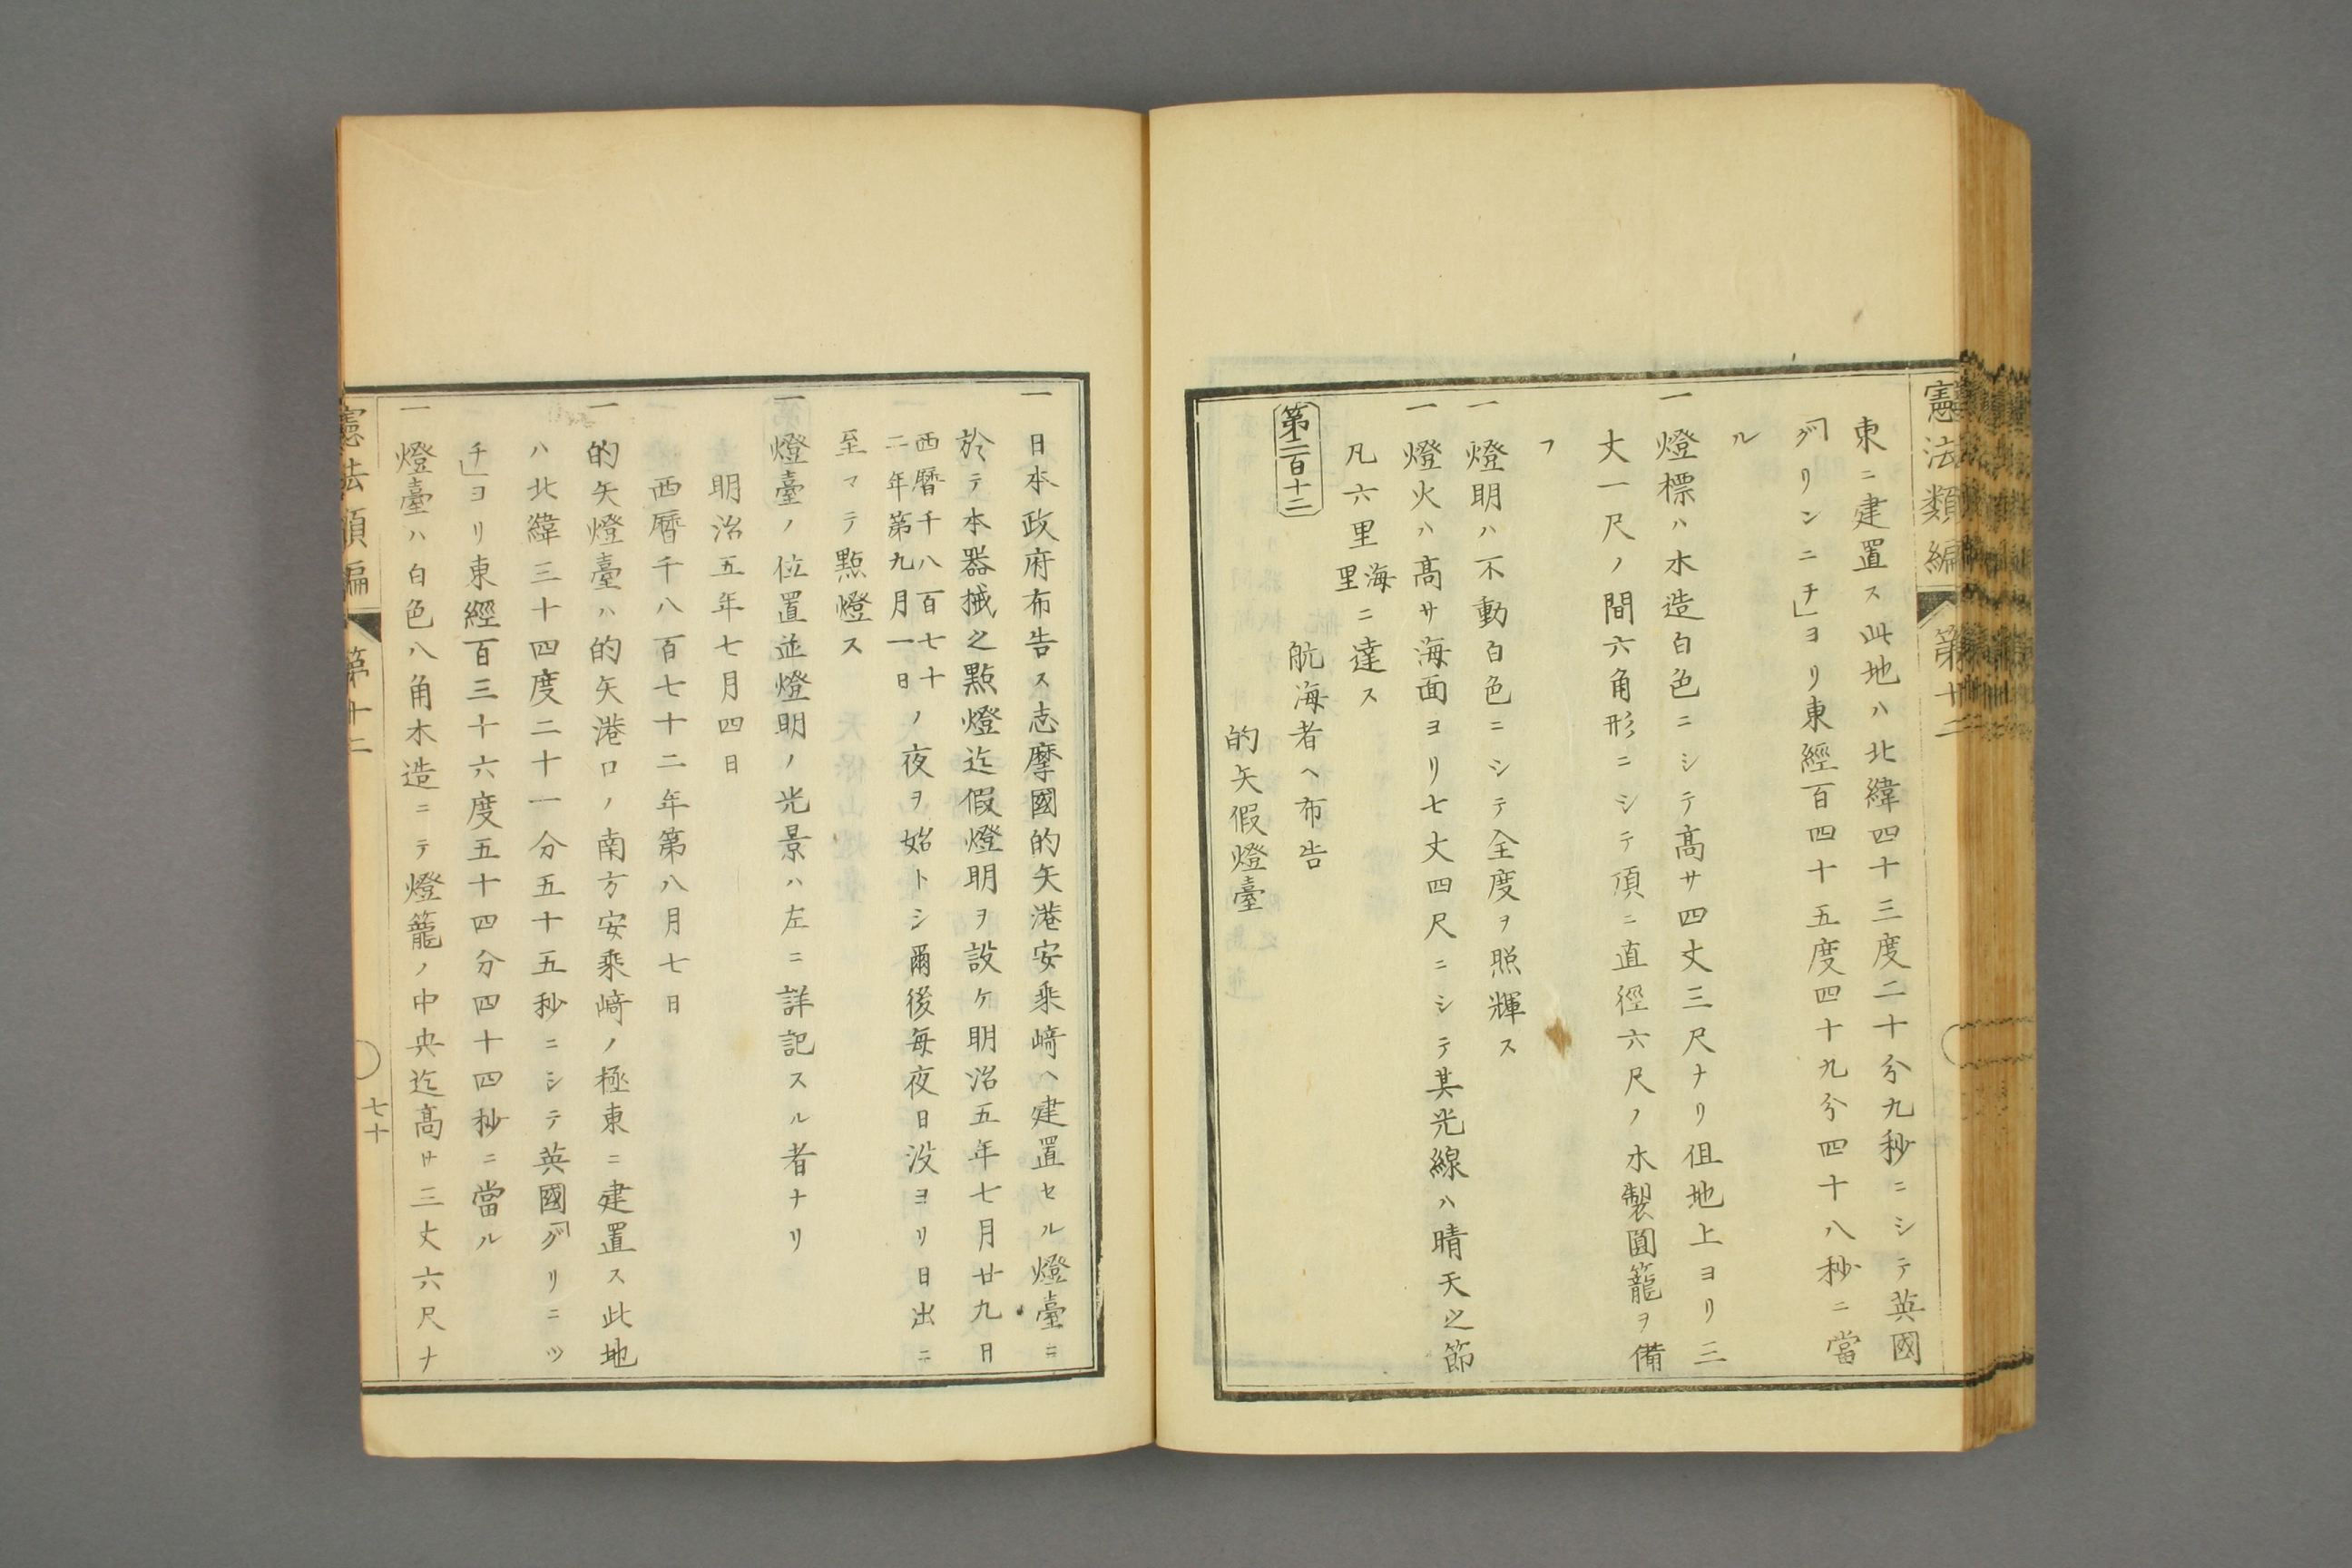 憲法類編 第十二
東ニ建置ス此地ハ北緯四十三度二十分九秒ニシテ英國
「グリンニチ」ヨリ東經百四十五度四十九分四十八秒ニ當
ル
一燈標ハ木造白色ニシテ髙サ四丈三尺ナリ伹地上ヨリ三
丈一尺ノ間六角形ニシテ頂ニ直徑六尺ノ木製圓籠ヲ備
フ
一燈明ハ不動白色ニシテ全度ヲ照輝ス
一燈火ハ髙サ海面ヨリ七丈四尺ニシテ其光線ハ晴天之節
凡六里海里ニ達ス
第二百十二 航海者ヘ布告
的矢假燈臺
一日本政府布告ス志摩國的矢港安乘﨑ヘ建置セル燈臺ニ
於テ本器械之點燈迄假燈明ヲ設ケ明治五年七月廿九日
西暦千八百七十二年第九月一日ノ夜ヲ始トシ爾後每夜日没ヨリ日出ニ
至マテ點燈ス
一燈臺ノ位置並燈明ノ光景ハ左ニ詳記スル者ナリ
明治五年七月四日
西暦千八百七十二年第八月七日
一的矢燈臺ハ的矢港口ノ南方安乘﨑ノ極東ニ建置ス此地
ハ北緯三十四度二十一分五十五秒ニシテ英國「グリニッ
チ」ヨリ東經百三十六度五十四分四十四秒ニ當ル
一燈臺ハ白色八角木造ニテ燈籠ノ中央迄髙サ三丈六尺ナ
憲法類編 第十二 七十